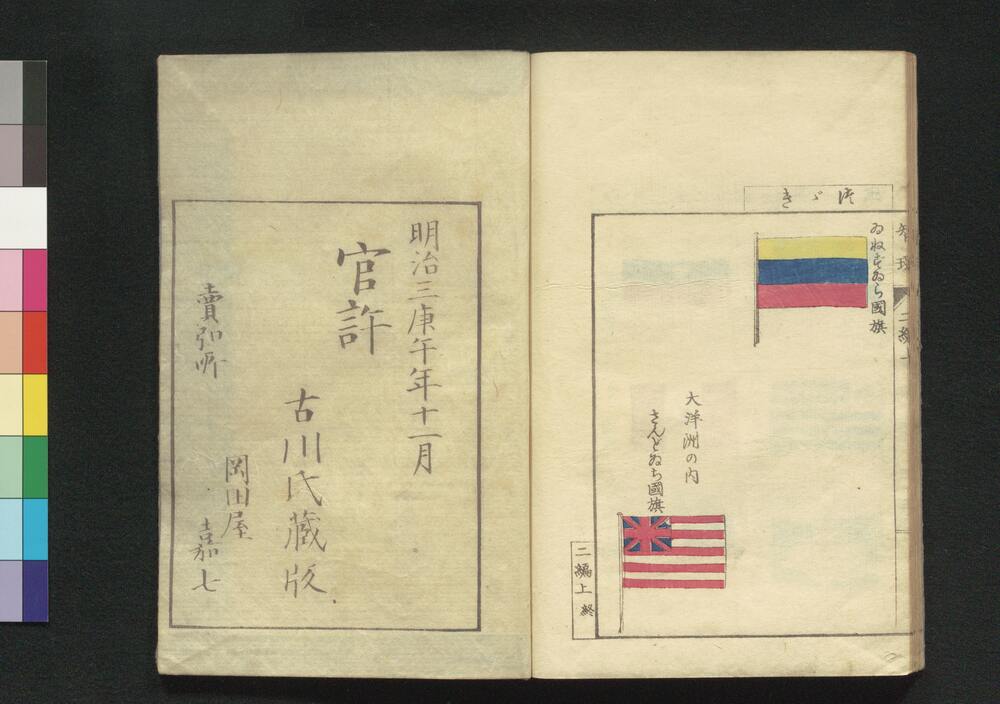 つゞき
智環
二編上
ゐねずゐら國旗
大洋洲の内
さんどゐち國旗
二編上終
明治三庚午年十一月
官許
古川氏藏版
岡田屋
嘉七
賣弘所